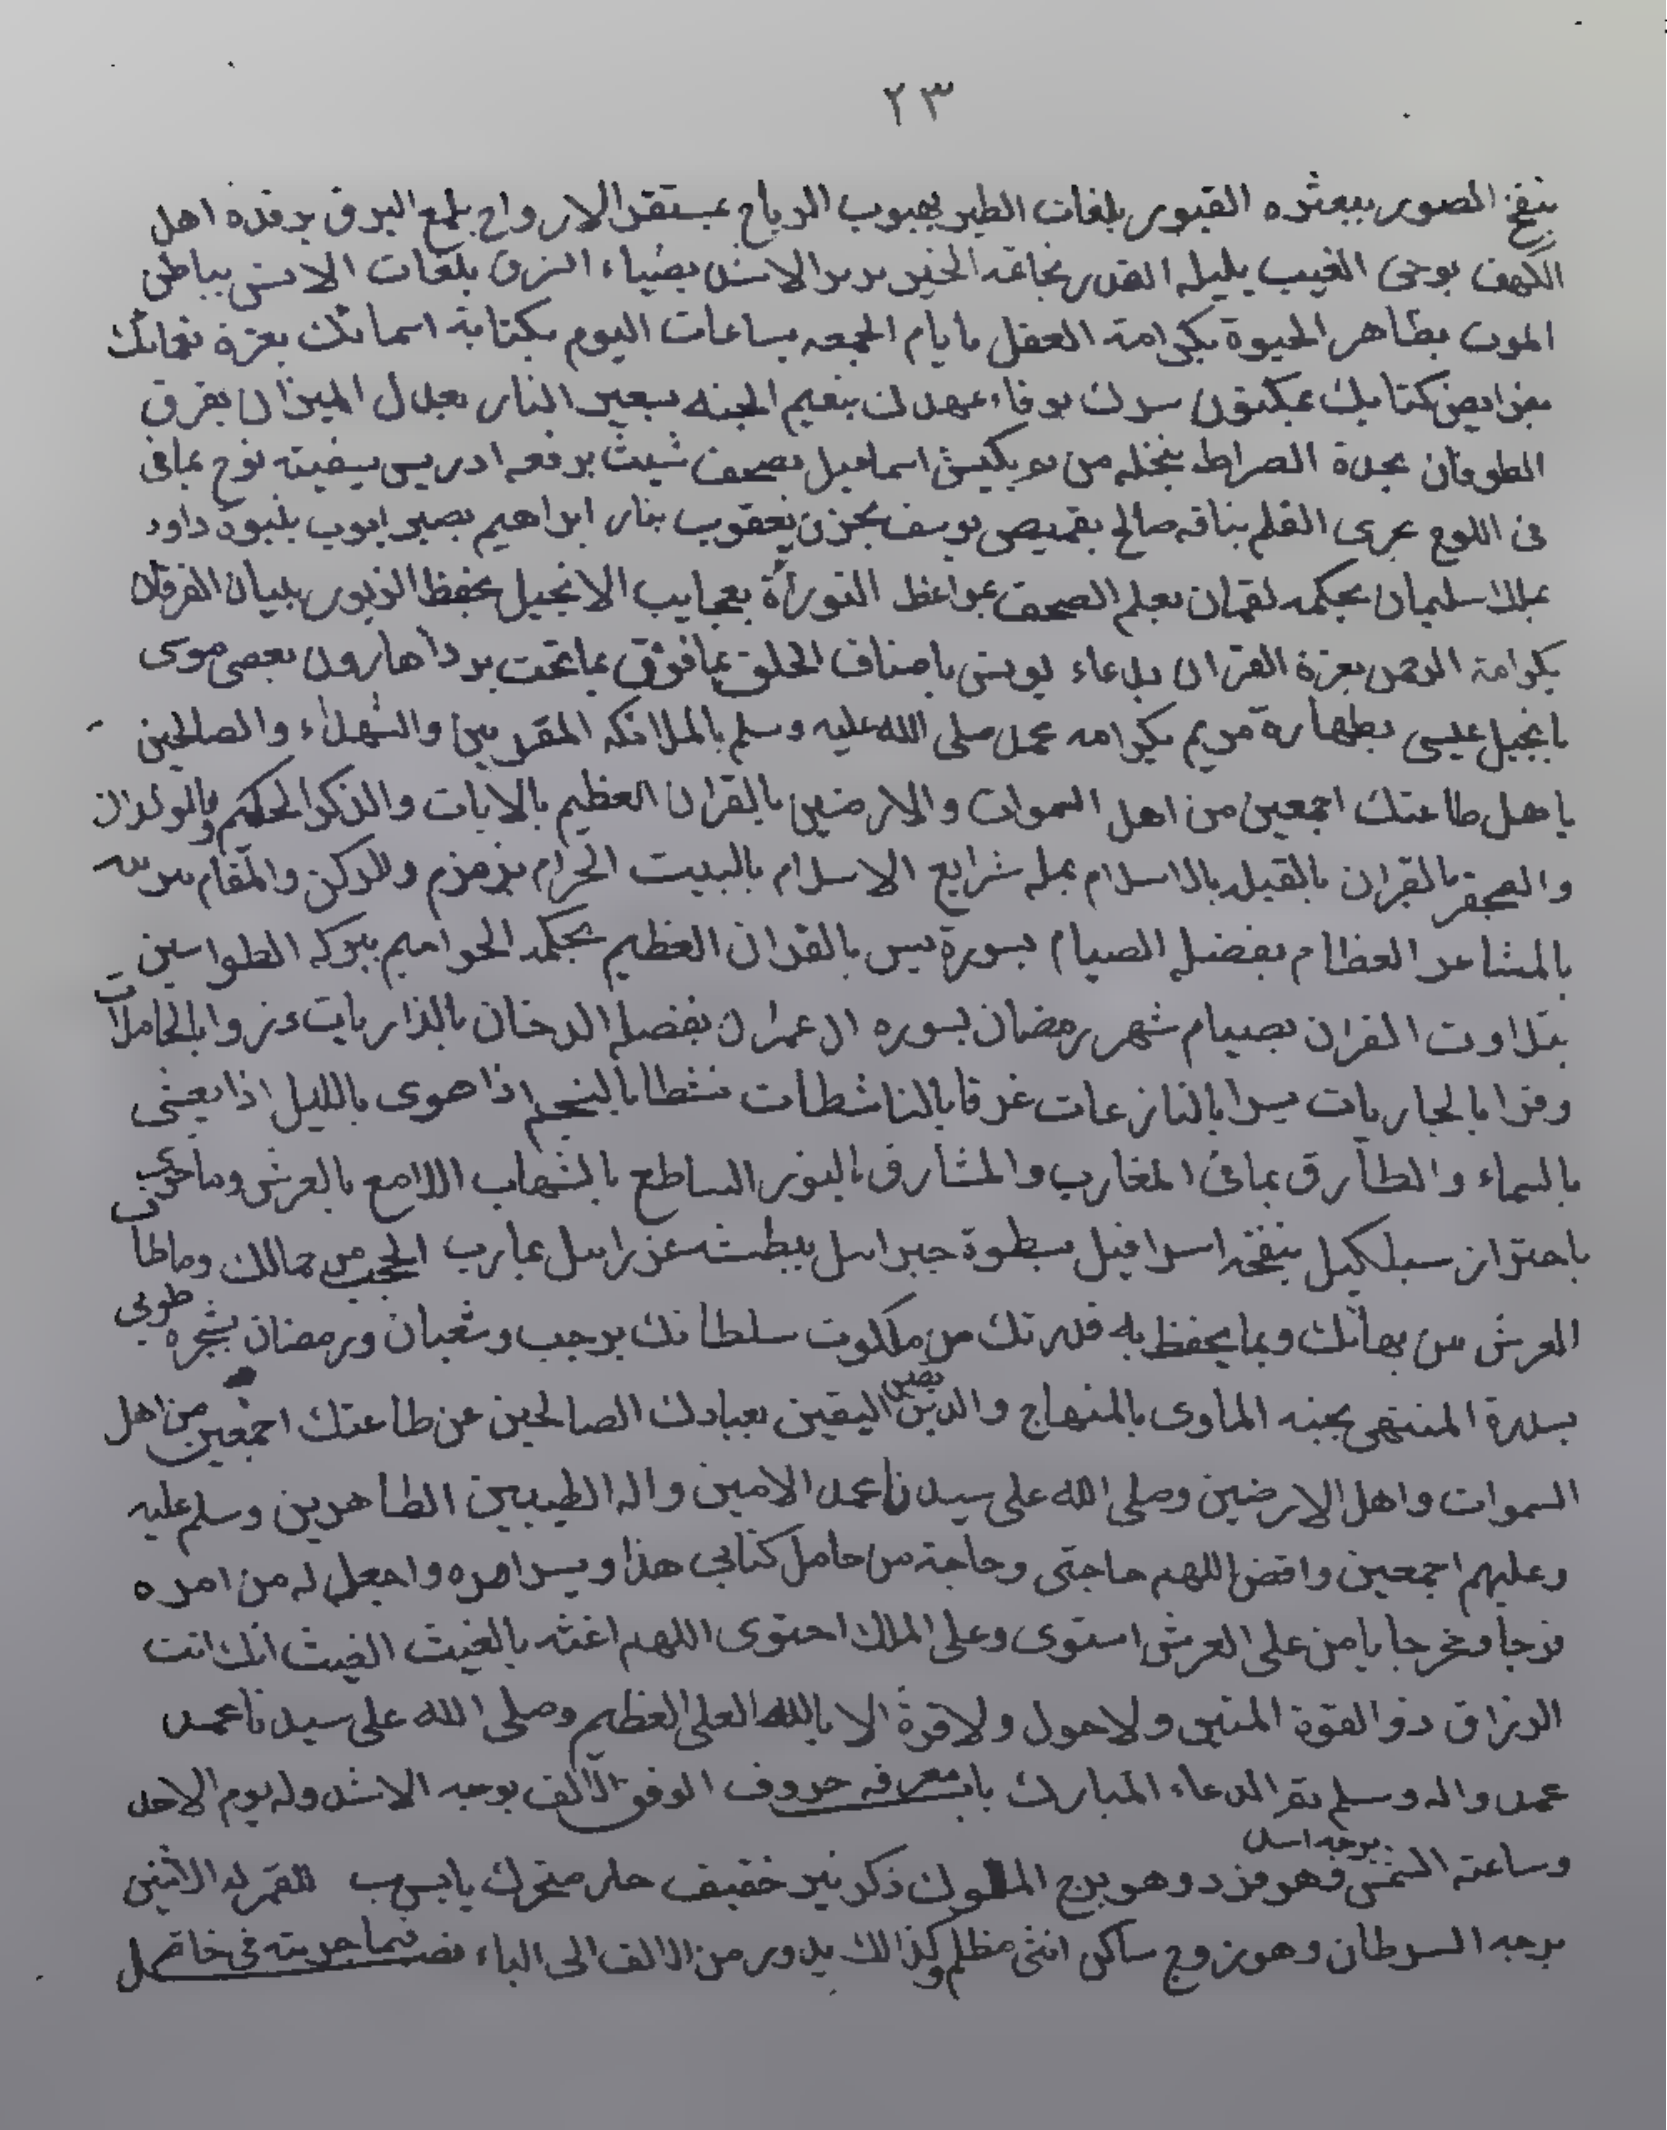 ٢٣
بنفخ الصور ببعثره القبور بلغات الطير بهبوب الرياح بمستقر الارواح بلمع البرق برقده اهل
الكهف بوحى الغيب بليله القدر بضياء بلغات بباطن
الموت بظاهر الحيوة بكرامة العقل بايام الجمعه بساعات اليوم بكتابة اسمائك بعزة
بفرايض كتابك بمكنون سرك بوفاء عهدك بنعيم الجنه بسعير النار بعدل الميزان بغرق
الطوفان بحدة الصراط بكبش اسماعيل بصحف شيث برفعه ادريس بسفينه نوح بما فى
فى اللوح بجرى القلم بناقه صالح بقميص يوسف بحزن يعقوب بنار ابراهيم بصبر ايوب بنبوة داود
بملك سليمان بحكمه لقمان بعلم الصحف بمواعظ التوراة بعجايب الانجيل بحفظ الزبور ببيان الفرقان
بكرامة الرحمن بعزة القران بدعاء يونس باصناف الخلق بما فوق بما تحت بردا هارون بعصى موسى
بانجيل عيسى بطهارة مريم بكرامه محمد صلى الله عليه وسلم بالملائكه المقربين والشهداء والصالحين
باهل طاعتك اجمعين من اهل السموات والارضين بالقران العظيم بالايات والذكر الحكيم وبالولدان
بالقران بالقبله بالاسلام بمله شرايع الاسلام بالبيت الحرام بزمزم والركن والمقام
بالمشاعر العظام بفضله الصيام بسورة يس بالقران العظيم بحكمه الحواميم ببركه الطواسين
بتلاوت القران بصيام شهر رمضان بسوره ال عمران بفضله الدخان بالذاريات ذروا بالحاملات
وقرا بالجاريات يسرا بالنازعات غرقا بالناشطات نشطا بالنجم اذا هوى بالليل اذا يغشى
بالسماء والطارق بما فى المغارب والمشارق بالنور الساطع بالشهاب اللامع بالعرش وما
باحتراز بنفخه اسرافيل بسطوة جبرايل ببطشه عزرايل الحجب من
العرش من بهائك وبما يحفظ به قدرتك من ملكوت سلطانك برجب وشعبان ورمضان بشجره طوبى
بسدرة المنتهى بجنه الماوى بالمنهاج والدين اليقين بعبادك الصالحين عن طاعتك اجمعين من اهل
السموات واهل الارضين وصلى الله على سيدنا محمد الامين واله الطيبين الطاهرين وسلم عليه
وعليهم اجمعين واقض اللهم حاجتى وحاجة من حامل كتابى هذا ويسر امره واجعل له من امره
فرجا ومخرجا يا من على العرش استوى وعلى الملك احتوى اللهم اغثه بالغيث الغيث انك انت
الرزاق ذو القوة المتين ولا حول ولا قوة الا بالله العلى العظيم وصلى الله على سيدنا محمد
محمد واله وسلم الدعاء المبارك باب معرفه حروف الوفق الالف بوجه وله يوم الاحد
وساعته الشمس وهو فرد وهو برج الملوك ذكر نير خفيف حار متحرك للقمر له الاثنين
برجه السرطان وهو زوج ساكن انثى مظلم وكذالك يدور من الالف الى الباء